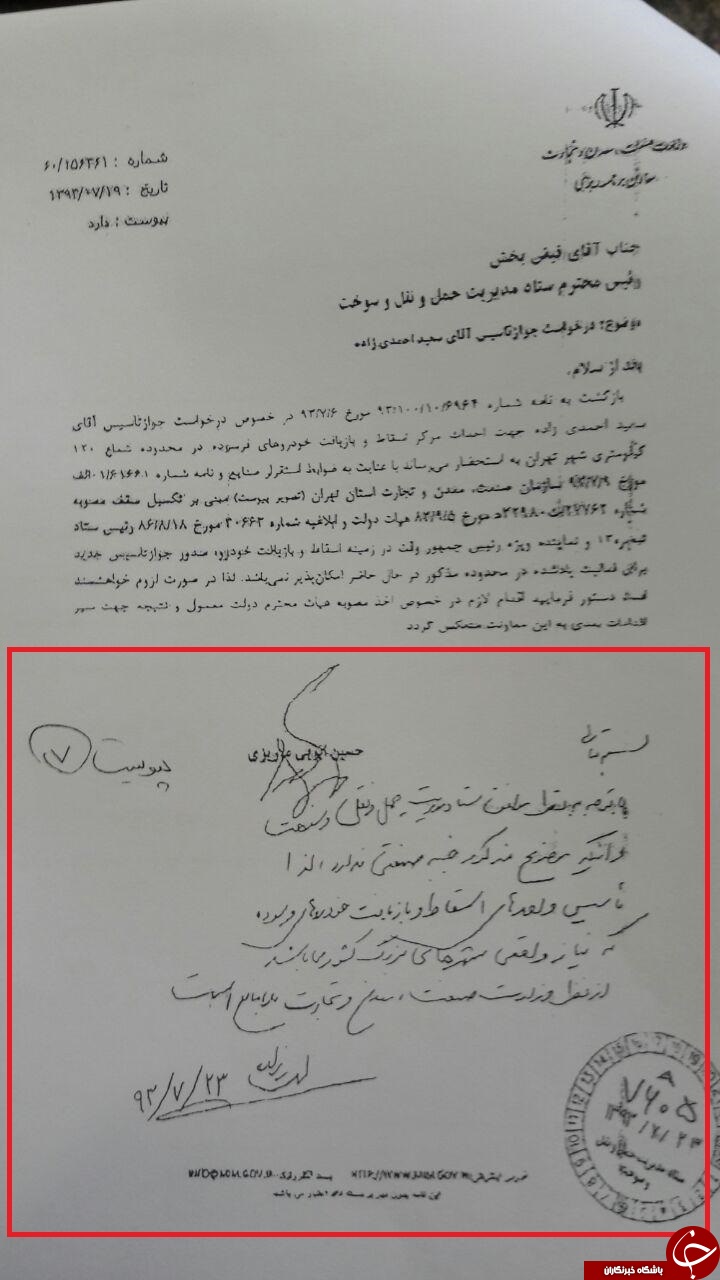 وزارت صنعت، معدن و تجارت
معاونت برنامه‌ریزی
شماره : ۶۰/۱۵۶۳۶۱
تاریخ : ۱۳۹۳/۰۷/۱۹
پیوست : دارد
جناب آقای فیض بخش
رئیس محترم ستاد مدیریت حمل و نقل و سوخت
موضوع: درخواست جوازتاسیس آقای سعید احمدی زاده
بعد از سلام،
بازگشت به نامه شماره ۹۳/۱۰۰/۱۰/۶۹۶۴ مورخ ۹۳/۷/۶ در خصوص درخواست جوازتاسیس آقای
سعید احمدی زاده جهت احداث مرکز اسقاط و بازیافت خودروهای فرسوده در محدوده شعاع ۱۲۰
کیلومتری شهر تهران به استحضار می‌رساند با عنایت به ضوابط استقرار صنایع و نامه شماره
مورخ ۹۳/۷/۹ سازمان صنعت، معدن و تجارت استان تهران (تصویر پیوست) مبنی بر تکمیل سقف مصوبه
شماره مورخ ۸۳/۹/۵ هیات دولت و ابلاغیه شماره ۴۰۶۶۳ مورخ ۸۶/۸/۱۸ رئیس ستاد
تبصره۱۳ و نماینده ویژه رئیس جمهور وقت در زمینه اسقاط و بازیافت خودرو، صدور جوازتاسیس جدید
برای فعالیت یادشده در محدوده مذکور در حال حاضر امکان‌پذیر نمی‌باشد. لذا در صورت لزوم خواهشمند
است دستور فرمایید اقدام لازم در خصوص اخذ مصوبه هیات محترم دولت معمول و نتیجه جهت سیر
اقدامات بعدی به این معاونت منعکس گردد
حسین ابویی مهریزی
پیوست ۷
با توجه به موافقت ستاد مدیریت حمل و نقل و سوخت
و اینکه طرح مذکور جنبه صنعتی ندارد لذا
تأسیس واحدهای اسقاط و بازیافت خودروهای فرسوده
که نیاز واقعی شهرهای بزرگ کشور می‌باشد
از نظر وزارت صنعت، معدن و تجارت بلامانع است
۹۳/۷/۲۳
۷۶۰۵
۱۳۹۳/۷/۲۳
ستاد مدیریت حمل و نقل
و سوخت
این نامه بدون مهر برجسته فاقد اعتبار می باشد
باشگاه خبرنگاران